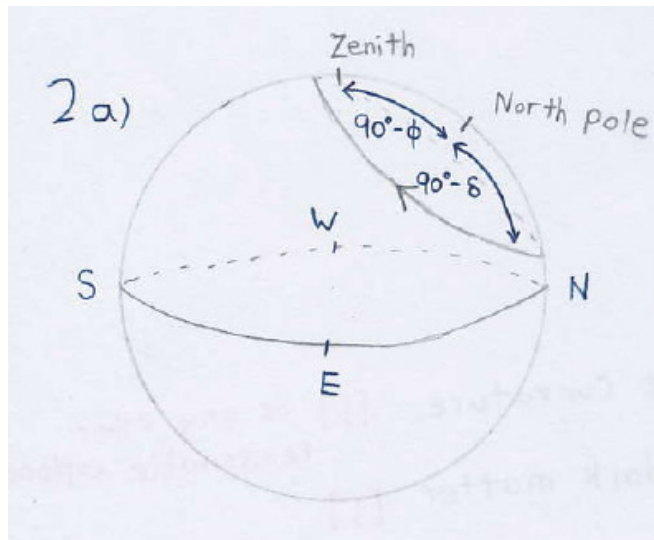 Zenith
2 a)
North pole
90°-ϕ
90°-δ
W
S
N
E